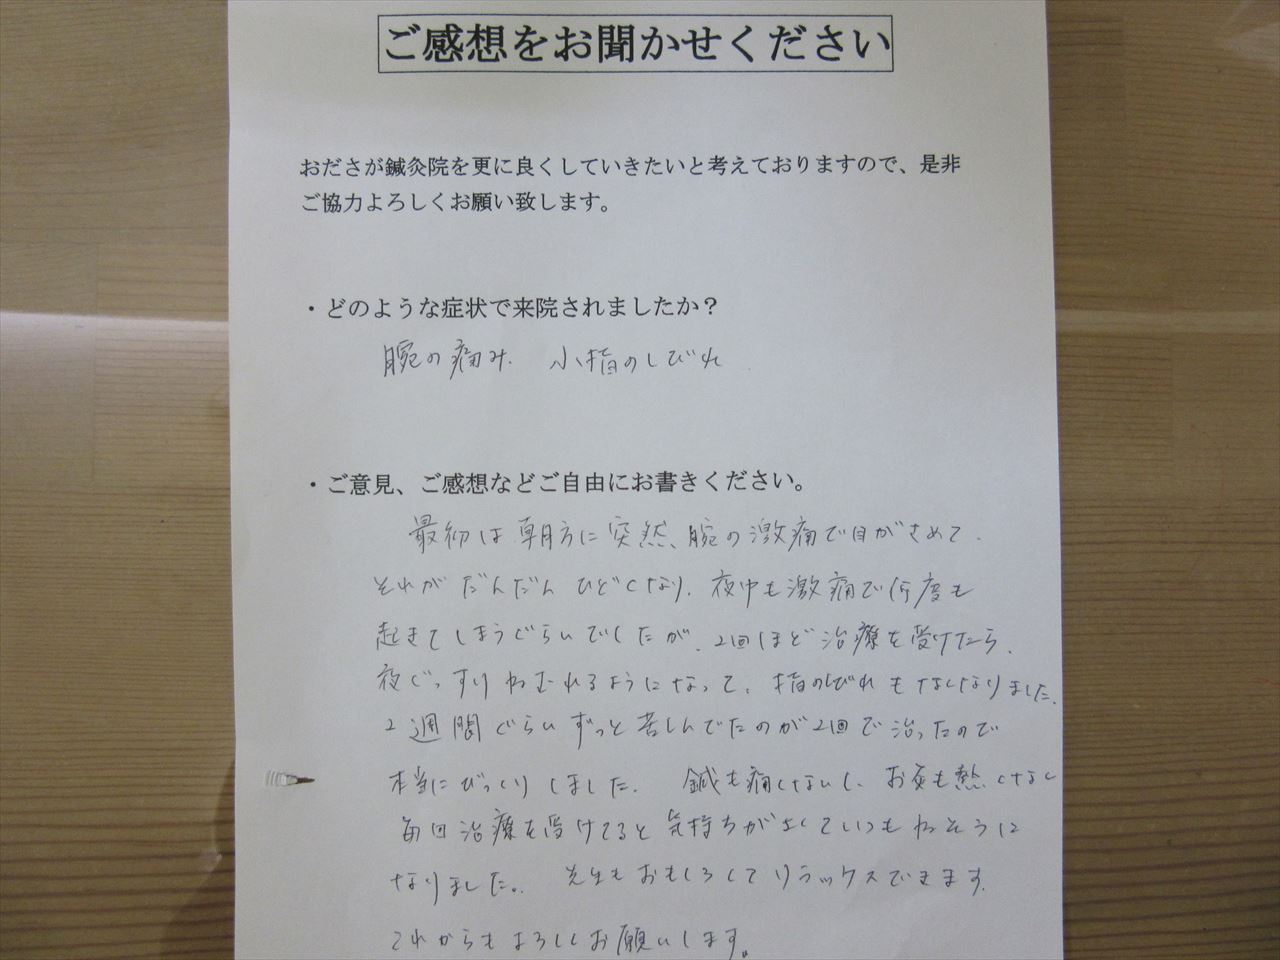 ご感想をお聞かせください
おださが鍼灸院を更に良くしていきたいと考えておりますので、是非
ご協力よろしくお願い致します。
・どのような症状で来院されましたか?
腕の痛み 小指のしびれ
・ご意見、ご感想などご自由にお書きください。
最初は朝方に突然、腕の激痛で目がさめて、
それがだんだんひどくなり、夜中も激痛で何度も
起きてしまうぐらいでしたが、2回ほど治療を受けたら、
夜ぐっすりねむれるようになって、指のしびれもなくなりました。
2週間ぐらいずっと苦しんでたのが2回で治ったので
本当にびっくりしました。 鍼も痛くないし、お灸も熱くなく
毎回治療を受けてると気持ちがよくていつもねそうに
なりました。 先生もおもしろくてリラックスできます。
これからもよろしくお願いします。